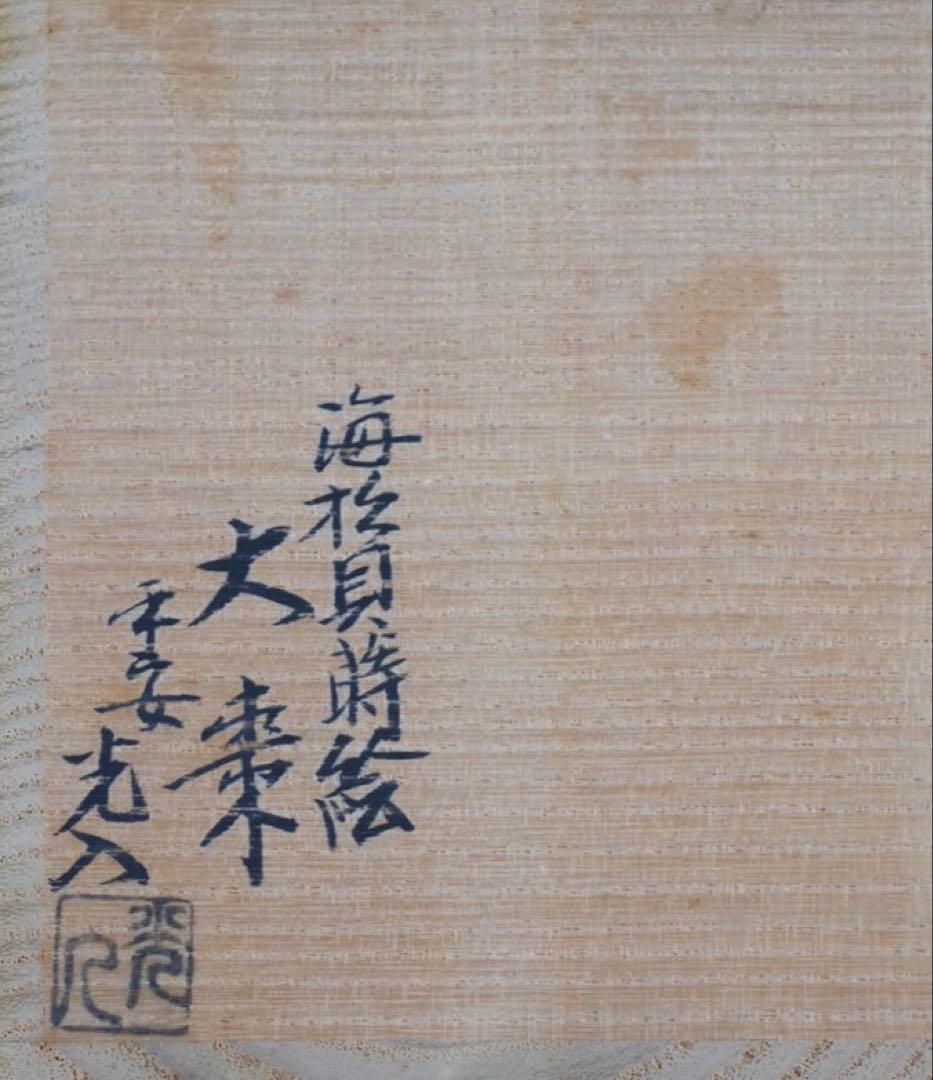 海松貝蒔絵
大棗
平安
光入
光入